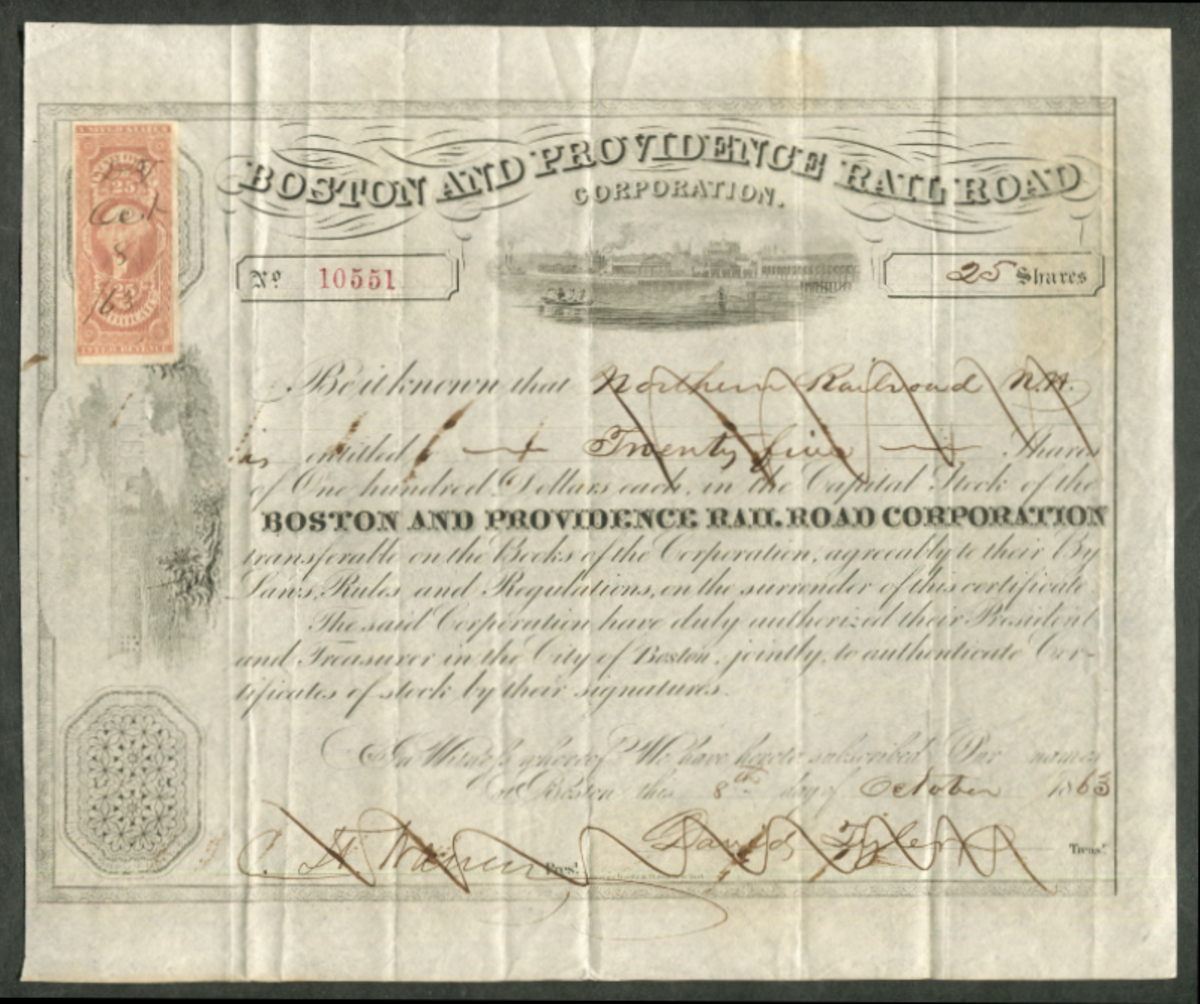 UNITED STATES
25
Oct
8
25
/63
CERTIFICATE
INTER. REVENUE
BOSTON AND PROVIDENCE RAIL ROAD
CORPORATION.
No 10551
25 Shares
Be it known that Northern Railroad N.H.
is entitled to Twenty five Shares
of One hundred Dollars each, in the Capital Stock of the
BOSTON AND PROVIDENCE RAIL ROAD CORPORATION
transferable on the Books of the Corporation, agreeably to their By
Laws, Rules and Regulations, on the surrender of this certificate
The said Corporation have duly authorized their President
and Treasurer in the City of Boston, jointly, to authenticate Cer-
tificates of stock by their signatures.
In Witness whereof We have hereto subscribed Our names
at Boston this 8th day of October 1863
C. H. Warren Prest. David Tyler Treasr.